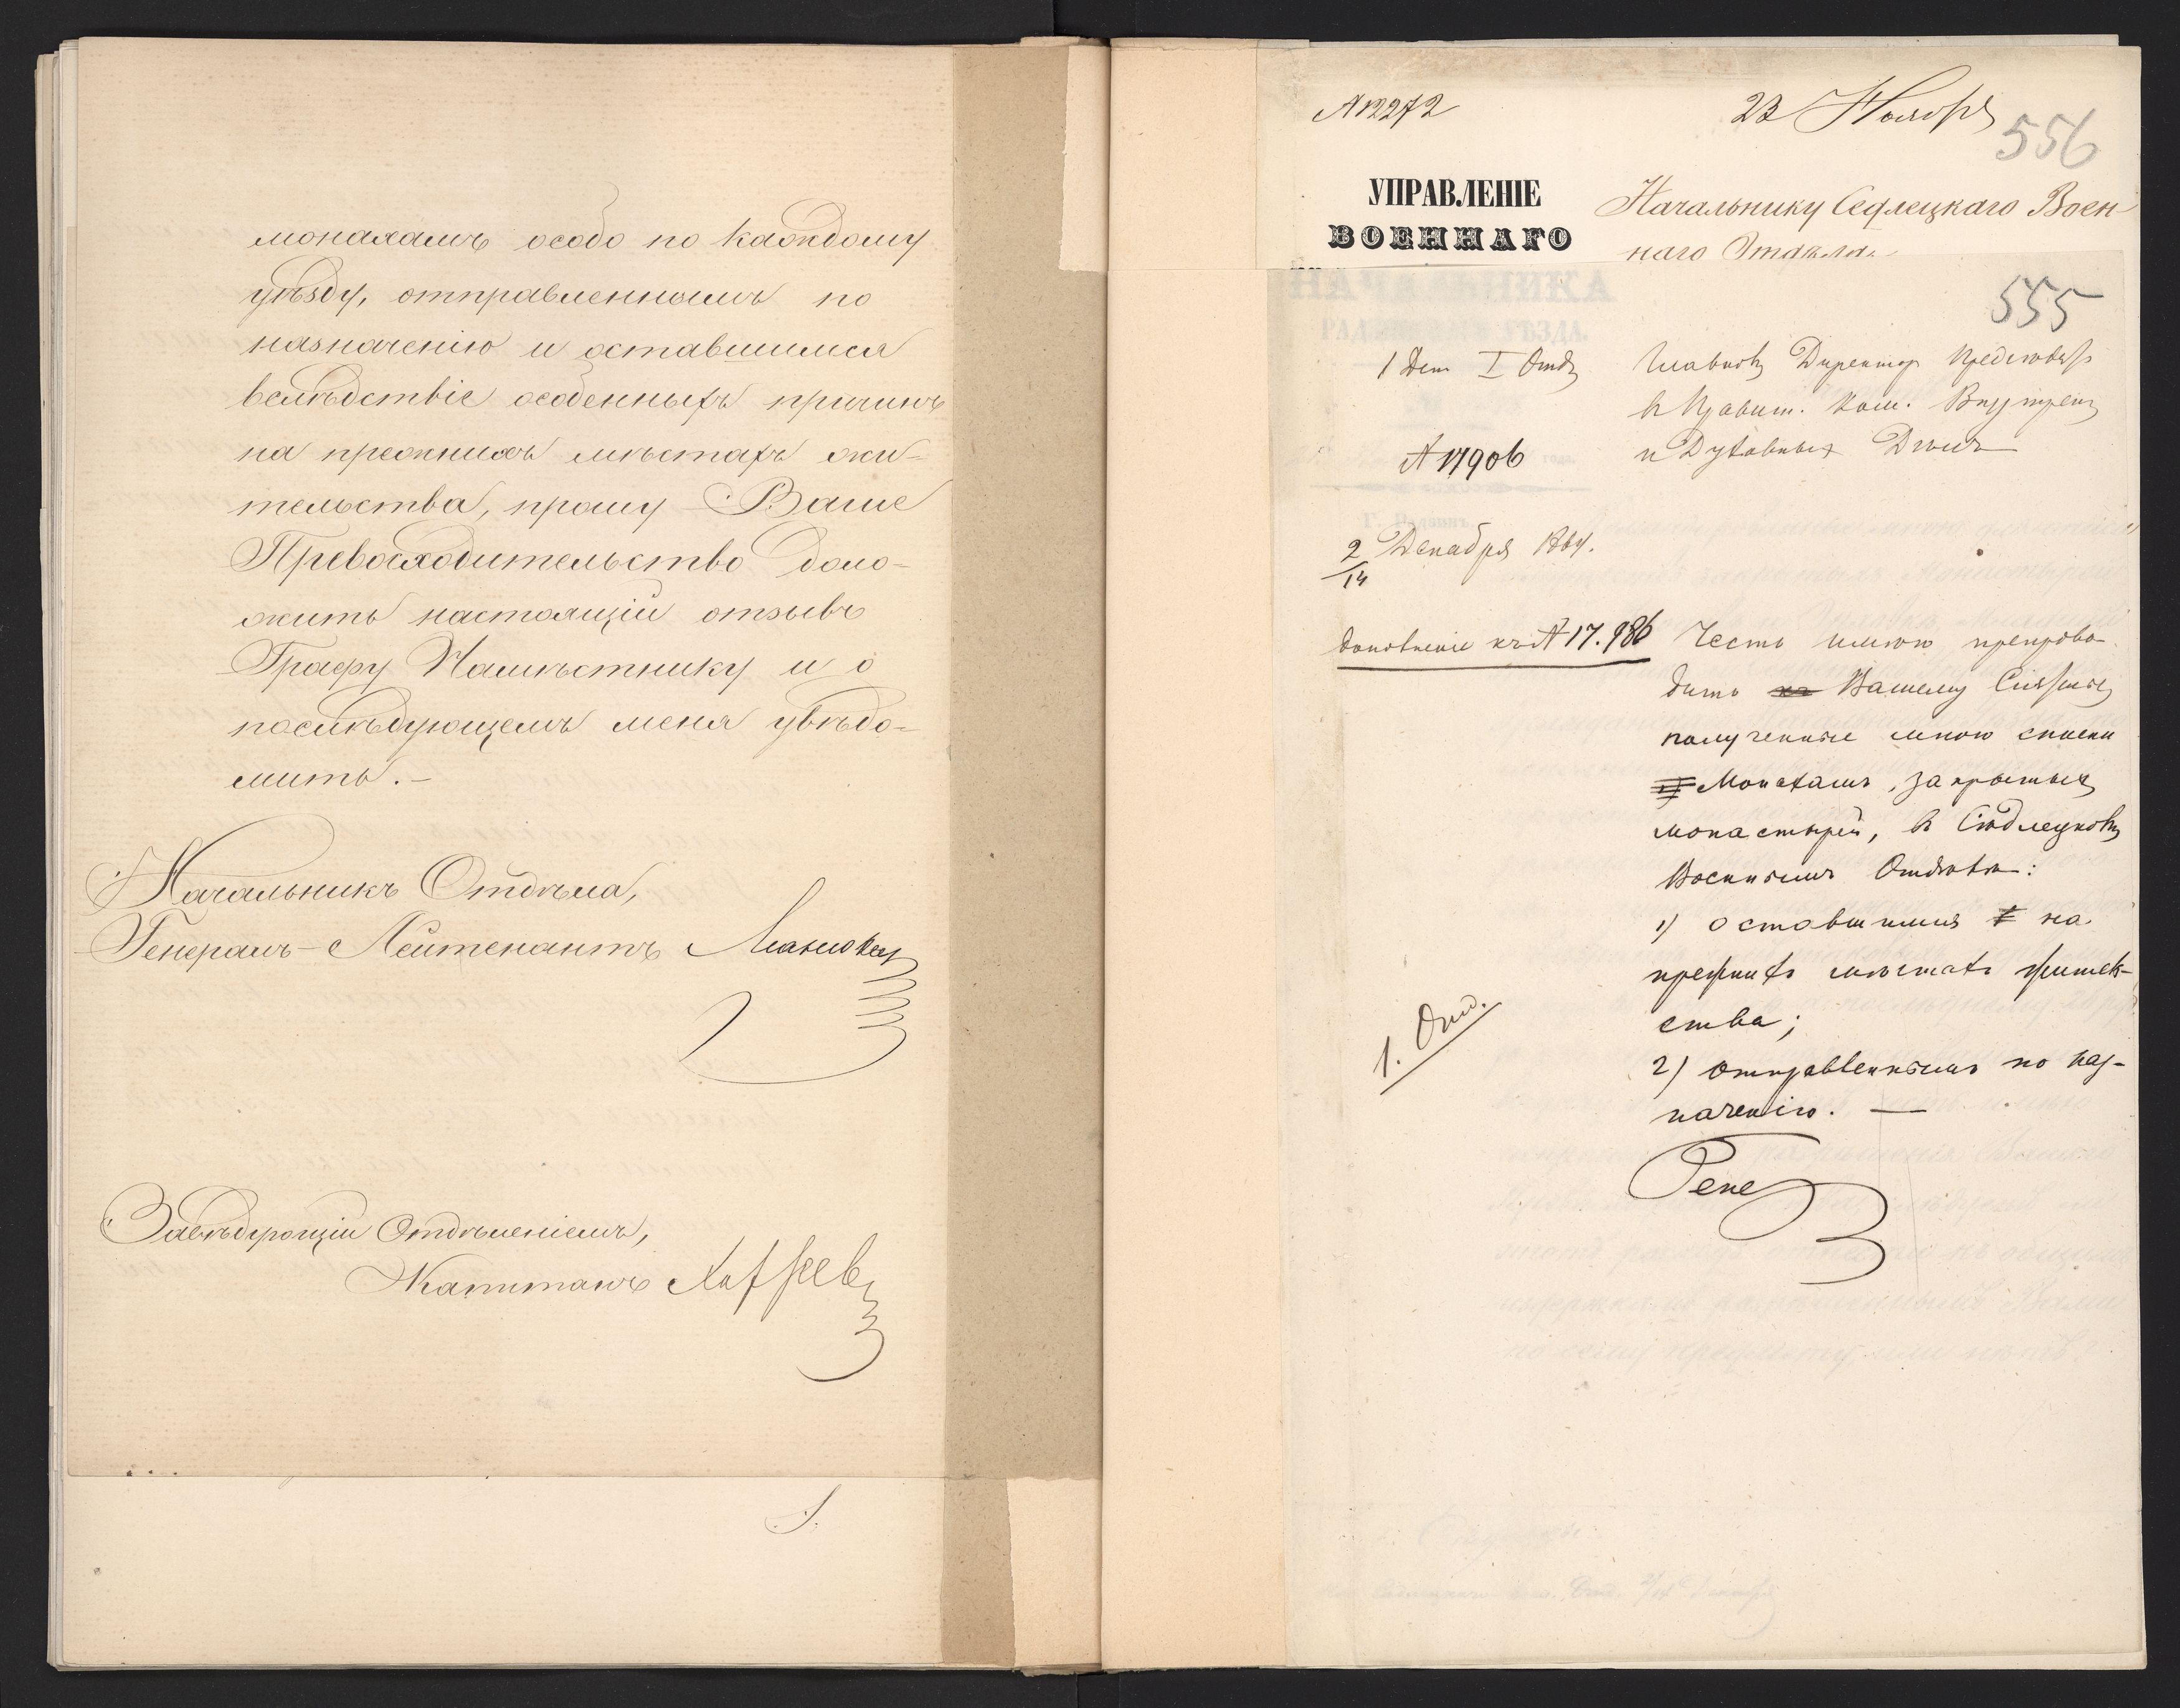 монахамъ особо по каждому
уѣзду, отправленнымъ по
назначенію и оставшимся
вслѣдствіе особенныхъ причинъ
на прежнихъ мѣстахъ жи-
тельства, прошу Ваше
Превосходительство доло-
жить настоящій отзывъ
Графу Намѣстнику и о
послѣдующемъ меня увѣдо-
мить.—
Начальникъ Отдѣла,
Генералъ-Лейтенантъ
Завѣдующій Отдѣленіемъ,
Капитанъ
№ 12272
23 Ноября
556
УПРАВЛЕНІЕ
ВОЕННАГО
Начальнику Седлецкаго Воен
наго Отдѣла
НАЧАЛЬНИКА
555
1 Деп I Отд
Главном Директор Предсѣдат
в Правит. Ком. Внутрен
и Духовныхъ Дѣлъ
№ 17906
2/14 Декабря 1864.
дополненіе къ № 17.986
Честь имѣю препрово-
дить Вашему Сіятельс
полученные мною списки
Монахамъ, закрытыхъ
монастырей, въ Сѣдлецком
Военномъ Отдѣлѣ:
1) оставшимся на
прежнихъ мѣстахъ житель-
ства;
2) отправленнымъ по наз-
наченію. —
1. Отд.